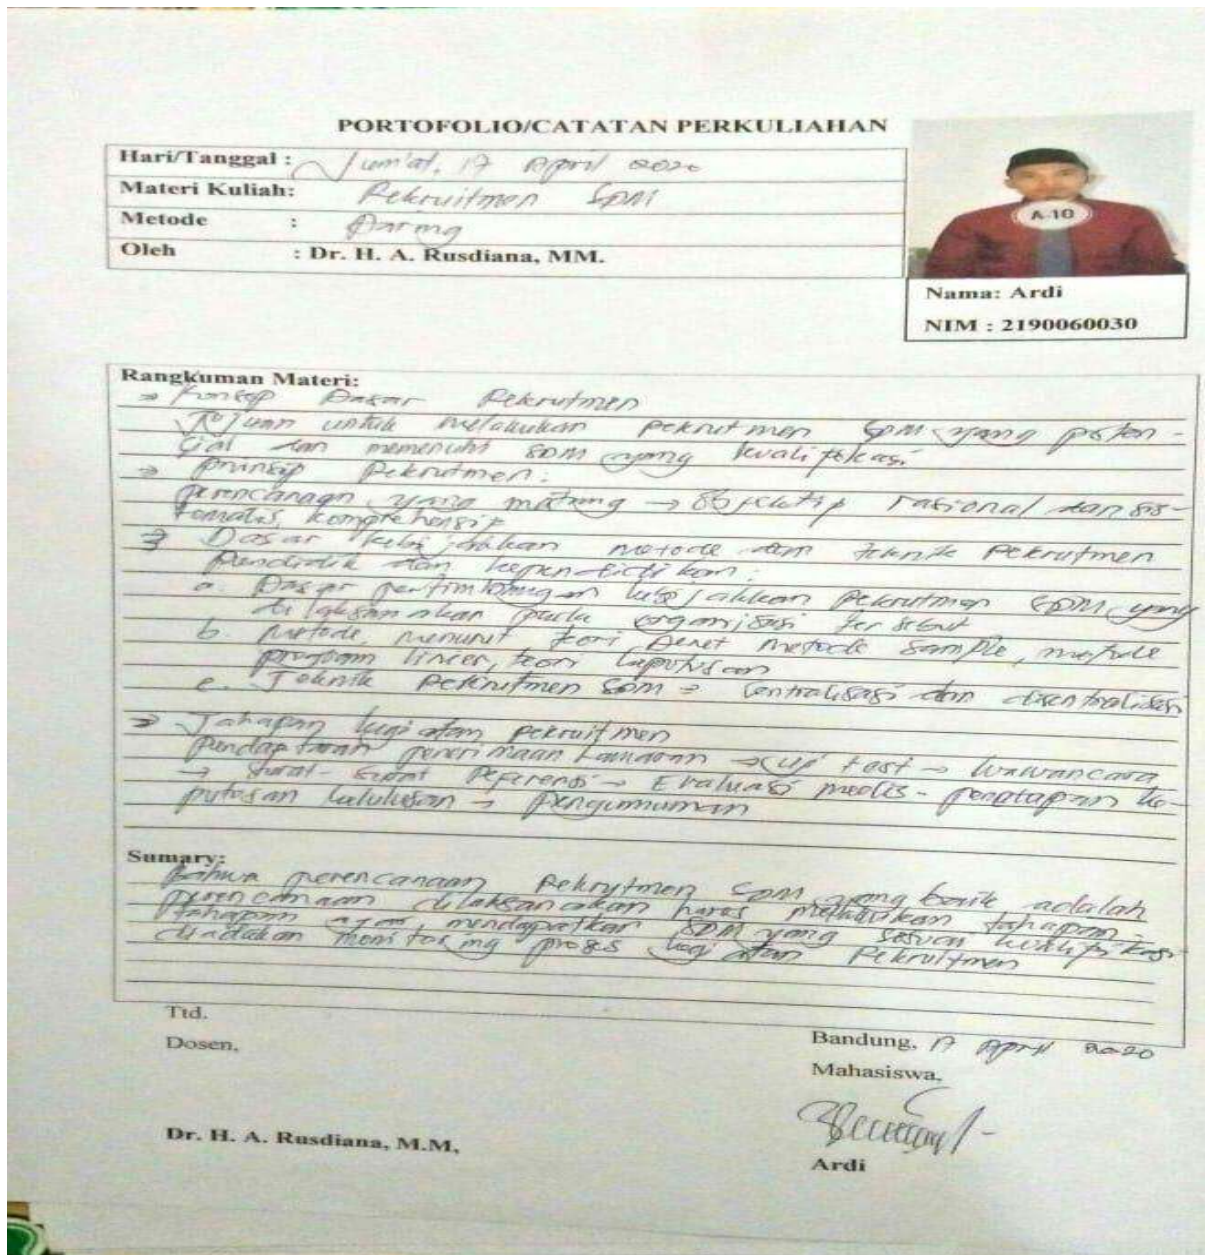 PORTOFOLIO/CATATAN PERKULIAHAN
Hari/Tanggal : Jum'at, 17 April 2020
Materi Kuliah: Rekruitmen SDM
Metode : Daring
Oleh : Dr. H. A. Rusdiana, MM.
A-10
Nama: Ardi
NIM : 2190060030
Rangkuman Materi:
→ Konsep Dasar Rekrutmen
Tujuan untuk melakukan rekrutmen SDM yang poten-
sial dan memenuhi SDM yang kualifikasi
→ prinsip Rekrutmen:
perencanaan yang matang → Objektip rasional dan sis-
tematis, komprehensip
→ Dasar kebijakan metode dan teknik Rekrutmen
Pendidik dan kependidikan:
a. Dasar pertimbangan kebijakan Rekrutmen SDM yang
dilaksanakan pada organisasi tersebut
b. metode, menurut teori metode sample, metode
program linier, teori keputusan
c. Teknik Rekrutmen SDM = Sentralisasi dan disentralisasi
→ Tahapan kegiatan Rekruitmen
pendaptaran penerimaan lamaran → uji test → wawancara
→ surat-surat Referensi → Evaluasi medis - penetapan ke-
putusan kelulusan → pengumuman
Sumary:
Bahwa perencanaan Rekrytmen SDM yang baik adalah
perencanaan dilaksanakan harus melakukan tahapan-
tahapan agar mendapatkan SDM yang sesuai kualifikasi
diadakan monitoring proses kegiatan Rekruitmen
Ttd.
Dosen,
Bandung, 17 April 2020
Mahasiswa,
Dr. H. A. Rusdiana, M.M,
Ardi